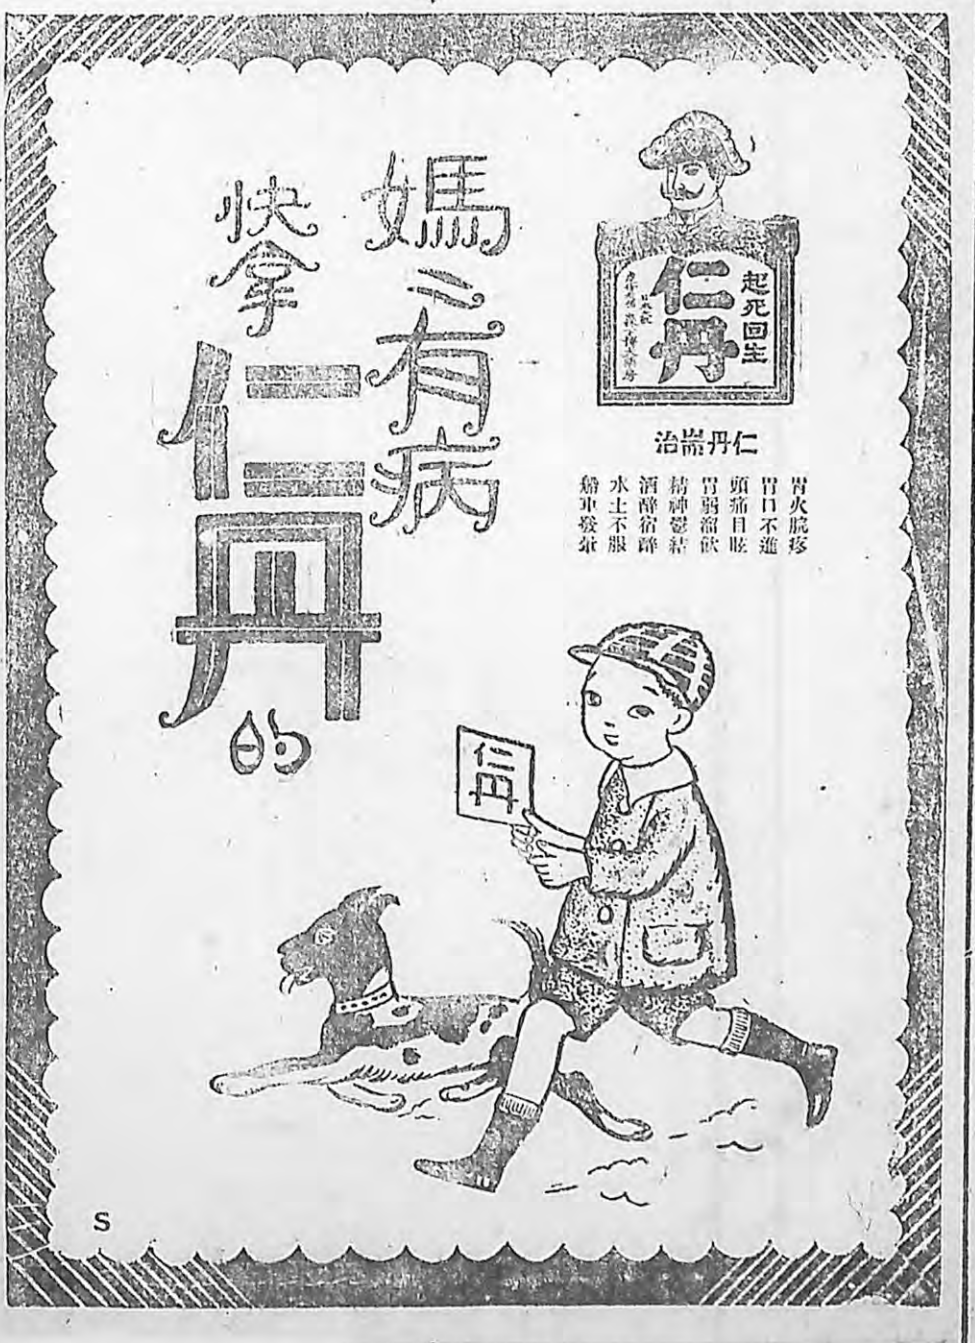 起死回生
仁丹
仁丹耑治
胃火脘疼
胃口不進
頭痛目眩
胃弱溜飲
精神鬱結
酒醉宿醉
水土不服
船車發暈
媽〻有病
快拿仁丹的
仁丹
S